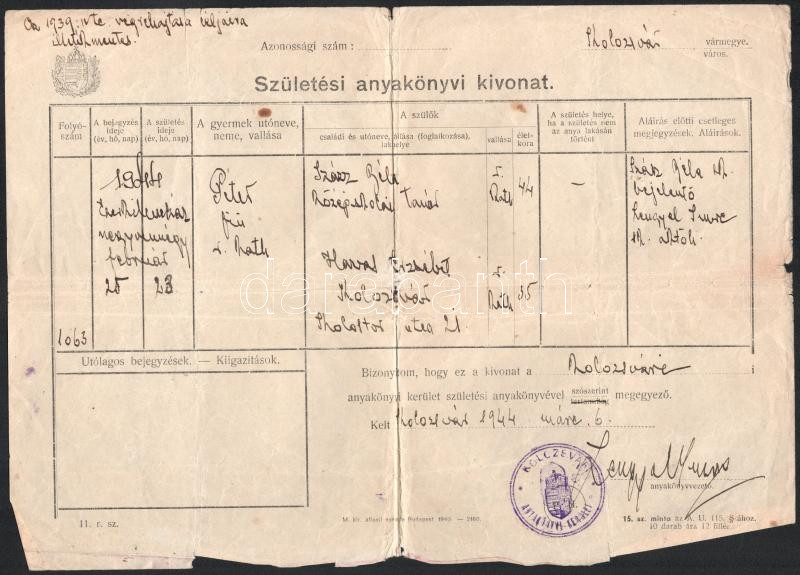 Az 1939. IV tc. végrehajtása céljaira
illetékmentes
Azonossági szám :
Kolozsvár vármegye.
város.
Születési anyakönyvi kivonat.
Folyó-
szám
A bejegyzés
ideje
(év, hó, nap)
A születés
ideje
(év, hó, nap)
A gyermek utóneve,
neme, vallása
A szülők
családi és utóneve, állása (foglalkozása),
lakhelye
vallása
élet-
kora
A születés helye,
ha a születés nem
az anya lakásán
történt
Aláírás előtti esetleges
megjegyzések. Aláírások.
1063
1944
Ezerkilencszáz
negyvennégy
február
25 23
Péter
fiú
r. kath
Szász Béla
középiskolai tanár
r.
kath
44
Erzsébet
Kolozsvár
Kolostor utca 21
r.
kath
35
–
Szász Béla sk.
bejelentő
Lengyel Imre
sk. aktők.
Utólagos bejegyzések. — Kiigazítások.
Bizonyítom, hogy ez a kivonat a kolozsvári i
anyakönyvi kerület születési anyakönyvével szószerint megegyező.
Kelt Kolozsvár 1944 márc. 6.
KOLOZSVÁRI
ANYAKÖNYVI KERÜLET
anyakönyvvezető.
11. r. sz.
M. kir. állami nyomda Budapest 1940. — 2160.
15. sz. minta az A. U. 115. §-ához.
10 darab ára 12 fillér.
darabanth